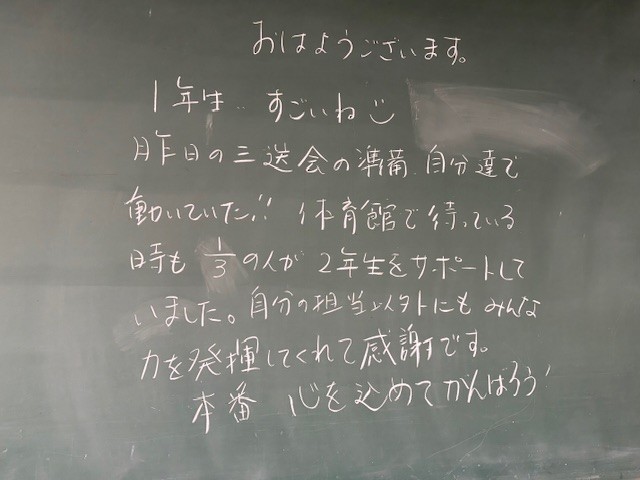 おはようございます。
1年生‥すごいね
昨日の三送会の準備、自分達で
働いていた!! 体育館で待っている
時も 1/3の人が 2年生をサポートして
いました。自分の担当以外にも みんな
力を発揮してくれて感謝です。
本番 心を込めてがんばろう!